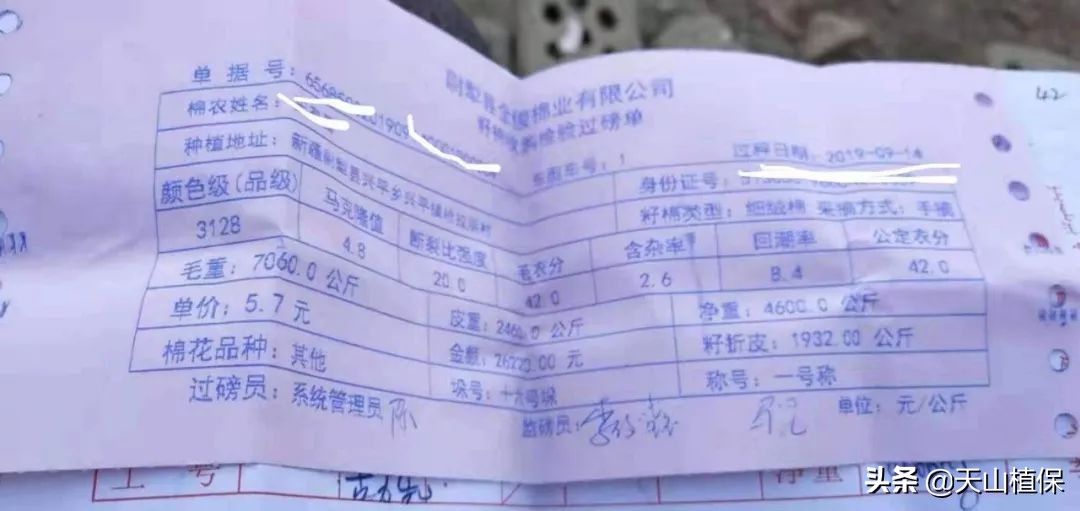 尉犁县金馥棉业有限公司
籽棉收购检验过磅单
42
单据号：
棉农姓名：
车厢车号：1
过秤日期：2019-09-14
种植地址：新疆尉犁县兴平乡兴平镇
身份证号：
籽棉类型：细绒棉 采摘方式：手摘
颜色级(品级) 马克隆值 断裂比强度 毛衣分 含杂率 回潮率 公定衣分
3128 4.8 20.0 42.0 2.6 8.4 42.0
毛重：7060.0 公斤 皮重：2460.0 公斤 净重：4600.0 公斤
单价：5.7 元 金额：26220.00 元 籽折皮：1932.00 公斤
棉花品种：其他 垛号：十六号垛 称号：一号称
过磅员：系统管理员 监磅员： 单位：元/公斤
工号 净重
头条 @天山植保